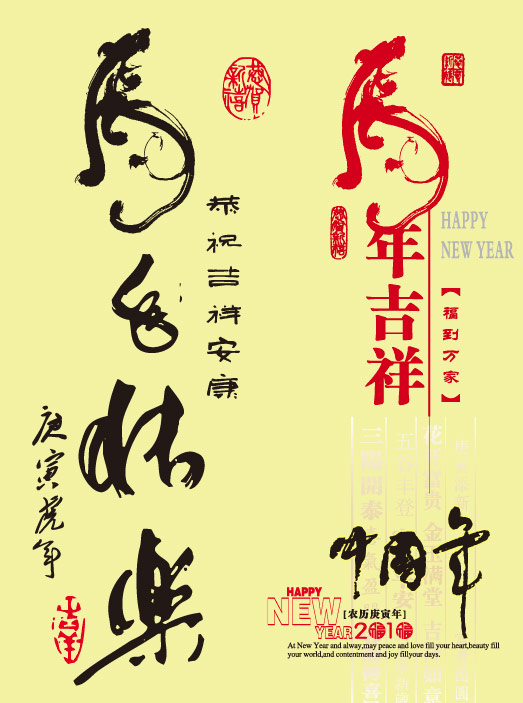 虎年快樂
恭賀新禧
恭祝吉祥安康
庚寅虎年
虎年吉祥
HAPPY
NEW YEAR
【福到万家】
三陽開泰
五谷丰登
花开富贵 金玉满堂 吉
如意
中国年
HAPPY
NEW
YEAR 2010
[农历庚寅年]
At New Year and alway,may peace and love fill your heart,beauty fill
your world,and contentment and joy fillyour days.